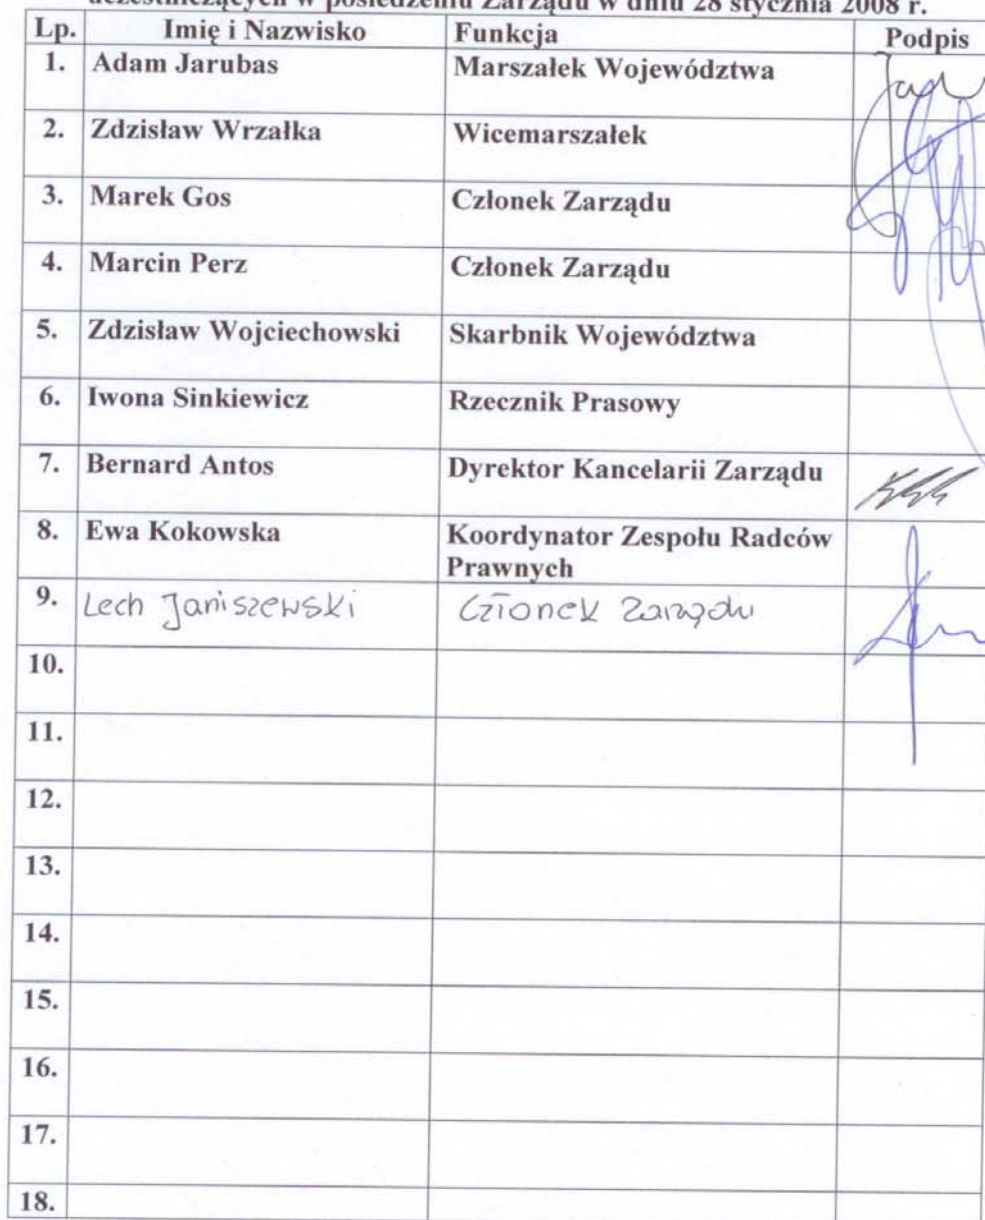 uczestniczących w posiedzeniu Zarządu w dniu 28 stycznia 2008 r.
Lp. Imię i Nazwisko Funkcja Podpis
1. Adam Jarubas Marszałek Województwa
2. Zdzisław Wrzałka Wicemarszałek
3. Marek Gos Członek Zarządu
4. Marcin Perz Członek Zarządu
5. Zdzisław Wojciechowski Skarbnik Województwa
6. Iwona Sinkiewicz Rzecznik Prasowy
7. Bernard Antos Dyrektor Kancelarii Zarządu
8. Ewa Kokowska Koordynator Zespołu Radców
Prawnych
9. Lech Janiszewski Członek Zarządu
10.
11.
12.
13.
14.
15.
16.
17.
18.